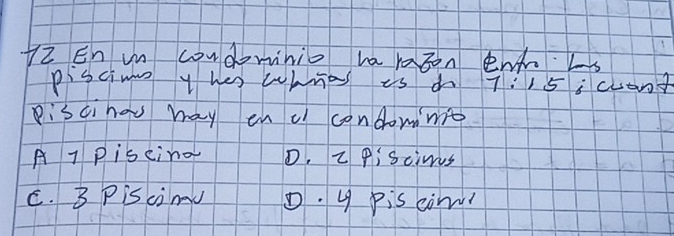 12 En un condominio la razon entre las
piscinas y las cabañas es de 1:15 ¿cuant
piscinas hay en el condominio
A 1 Piscina D. 2 Piscinas
C. 3 Piscinas D. 4 piscinas